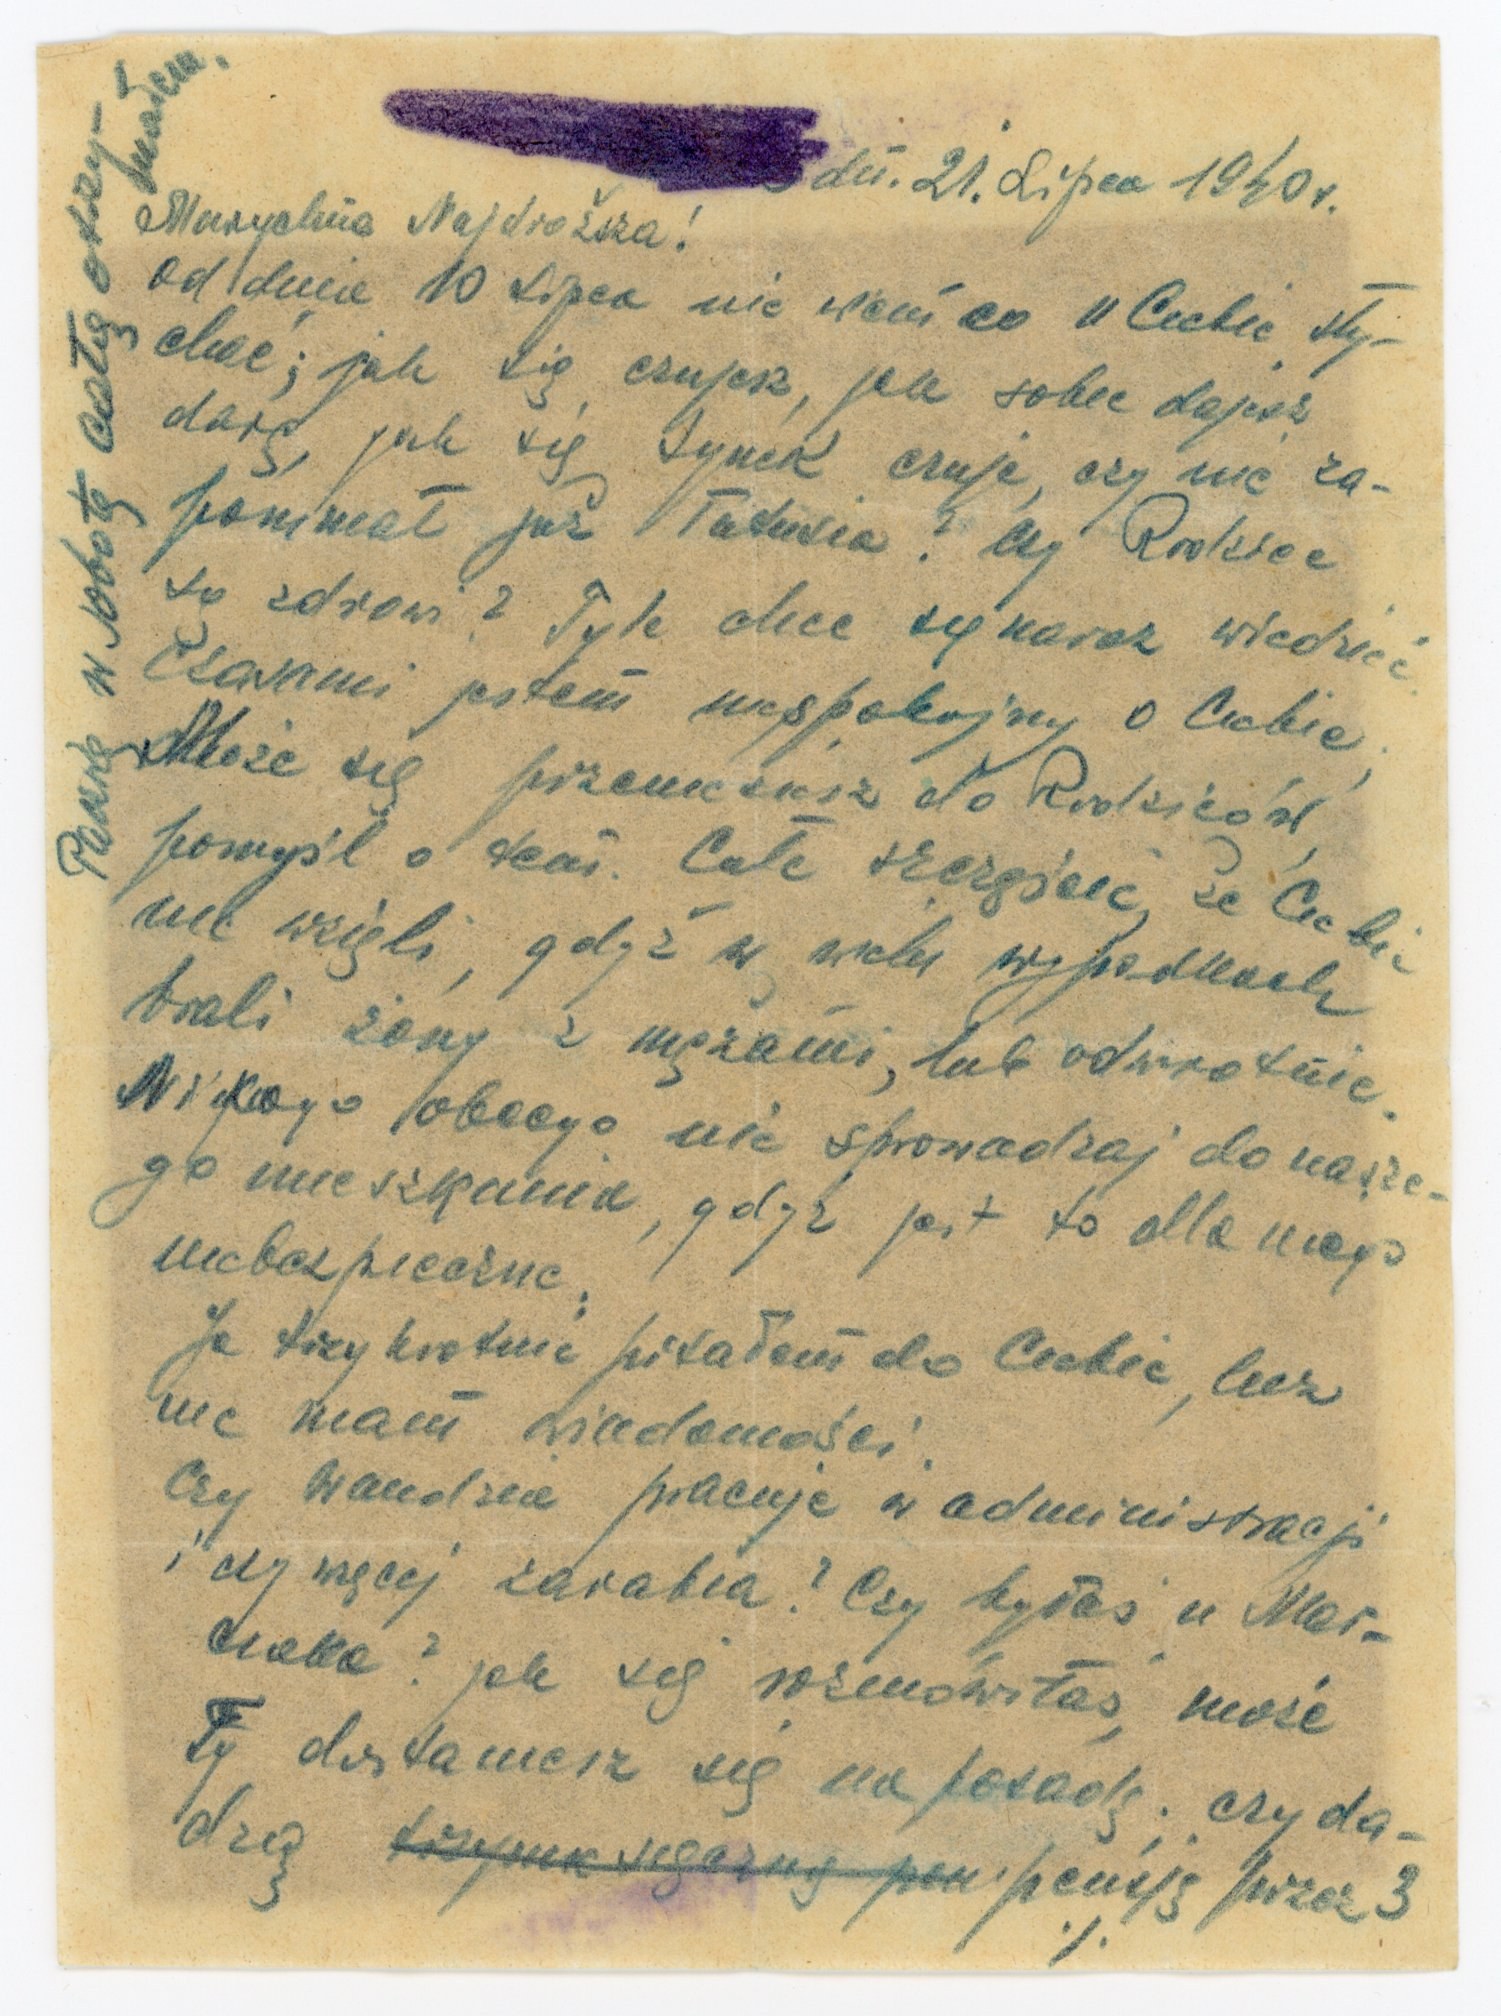 dn. 21. Lipca 1940 r.
Marychno Najdroższa!
Od dnia 10 Lipca nie wiem co u Ciebie sły-
chać; jak się czujesz, jak sobie dajesz
darę, jak się synek czuje, czy nie za-
pomniał już Tatusia? Czy Rodzice
są zdrowi? Tyle chce się naraz wiedzieć.
Czasami jestem niespokojny o Ciebie;
Może się przeniesiesz do Rodziców,
pomyśl o tem. Całe szczęście, że Ciebie
nie wzięli, gdyż w wielu wypadkach
brali żony z mężami, lub odwrotnie.
Nikogo obcego nie sprowadzaj do nasze-
go mieszkania, gdyż jest to dla niego
niebezpieczne;
Ja trzykrotnie pisałem do Ciebie, lecz
nie mam wiadomości.
Czy Wandzia pracuje w administracji
i czy więcej zarabia? Czy byłaś u Mar-
ciaka? jak się rozmówiłaś, może
Ty dostaniesz się na posadę; czy da-
dzą pensję przez 3
./.
Paskę w sobotę całą otrzy-
małem.